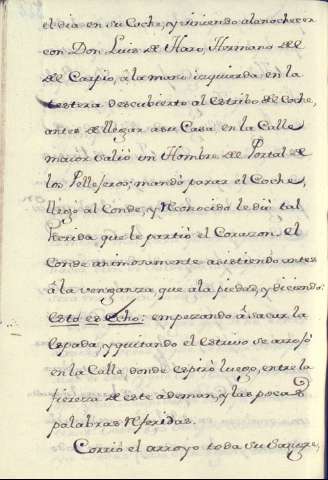 el dia en su Coche, y viniendo al anochecer
con Don Luis de Haro, Hermano del
de Carpio, â la mano izquierda en la
testera descubierto al estribo del Coche,
antes de llegar a su Casa en la Calle
maior salió un Hombre del Portal de
los Pellejeros; mandó parar el Coche,
llego al Conde, y reconocido le dió tal
herida que le partió el Corazon. El
Conde animosamente asistiendo antes
â la venganza que a la piedad, y diciendo:
Esto es Echo: empezando â sacar la
espada, y quitando el estrivo se arrojó
en la Calle, donde espiró luego, entre la
fiereza de este ademan, y las pocas
palabras referidas.
Corrió el arroyo toda su Sangre,